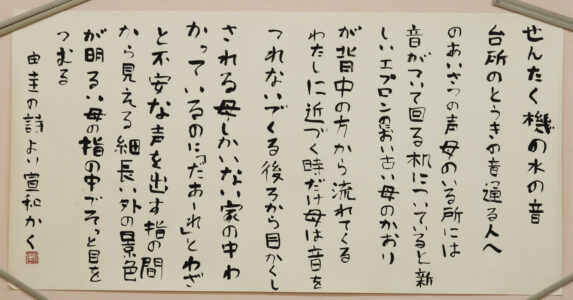 せんたく機の水の音
台所のとうきの音通る人へ
のあいさつの声母のいる所には
音がついて回る机についていると新
しいエプロンのにおい古い母のかおり
が背中の方から流れてくる
わたしに近づく時だけ母は音を
つれないでくる後ろから目かくし
される母しかいない家の中わ
かっているのに「だあーれ」とわざ
と不安な声を出す指の間
から見える細長い外の景色
が明るい母の指の中でそっと目を
つむる
由圭の詩より宣和かく